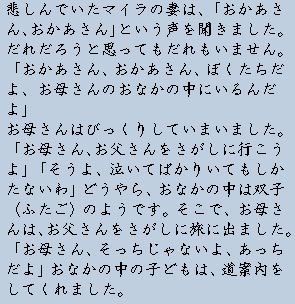 悲しんでいたマイラの妻は、「おかあさ
ん、おかあさん」という声を聞きました。
だれだろうと思ってもだれもいません。
「おかあさん、おかあさん、ぼくたちだ
よ、お母さんのおなかの中にいるんだ
よ」
お母さんはびっくりしていまいました。
「お母さん、お父さんをさがしに行こう
よ」「そうよ、泣いてばかりいてもしか
たないわ」どうやら、おなかの中は双子
（ふたご）のようです。そこで、お母さ
んは、お父さんをさがしに旅に出ました。
「お母さん、そっちじゃないよ、あっち
だよ」おなかの中の子どもは、道案内を
してくれました。